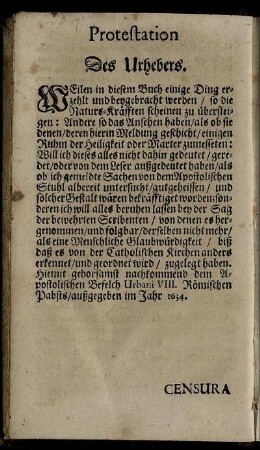 Protestation
Des Urhebers.
WEilen in diesem Buch einige Ding er⸗
zehlt und beygebracht werden / so die
Naturs⸗Kräfften scheinen zu überstei⸗
gen: Andere so das Ansehen haben / als ob sie
denen / deren hierin Meldung geschicht / einigen
Ruhm der Heiligkeit oder Marter zumesseten:
Will ich dieses alles nicht dahin gedeutet / gere⸗
det / oder von dem Leser außgedeutet haben / als
ob ich gemeldte Sachen von dem Apostolischen
Stuhl albereit untersucht / gutgeheissen / und
solcher Gestalt wären bekräfftiget worden son⸗
deren ich will alles beruhen lassen bey der Sag
der bewehrten Scribenten / von denen es her⸗
genommen / und folgbar / derselben nicht mehr /
als eine Menschliche Glaubwürdigkeit / biß
daß es von der Catholischen Kirchen anders
erkennet / und geordnet wird / zugelegt haben.
Hiemit gehorsamst nachkommend dem A⸗
postolischen Befelch Urbani VIII. Römischen
Pabsts / außgegeben im Jahr 1634.
CENSURA